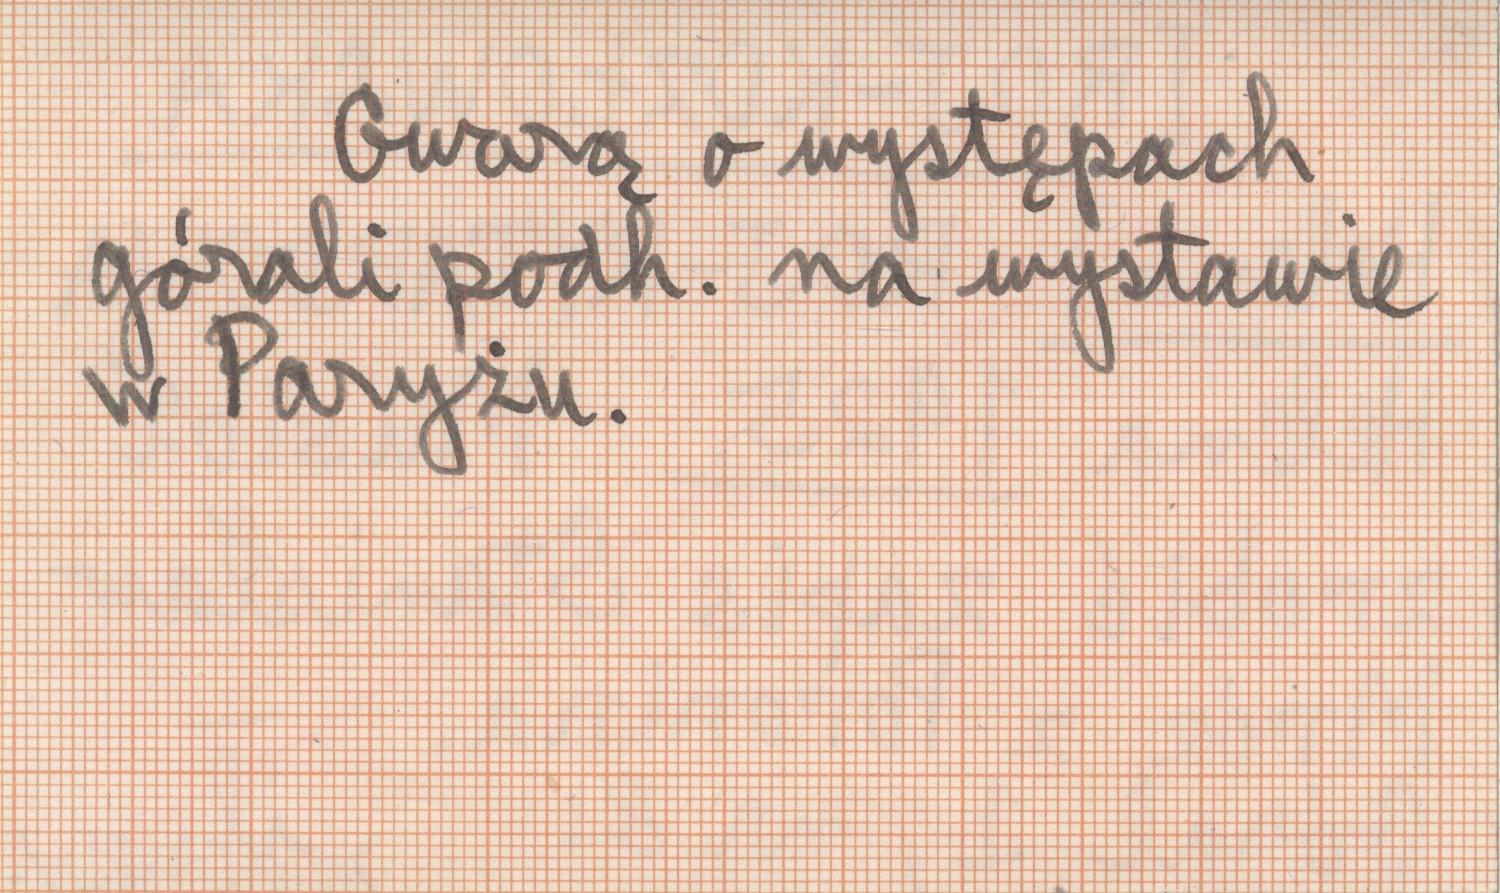 Gwarą o występach
górali podh. na wystawie
w Paryżu.